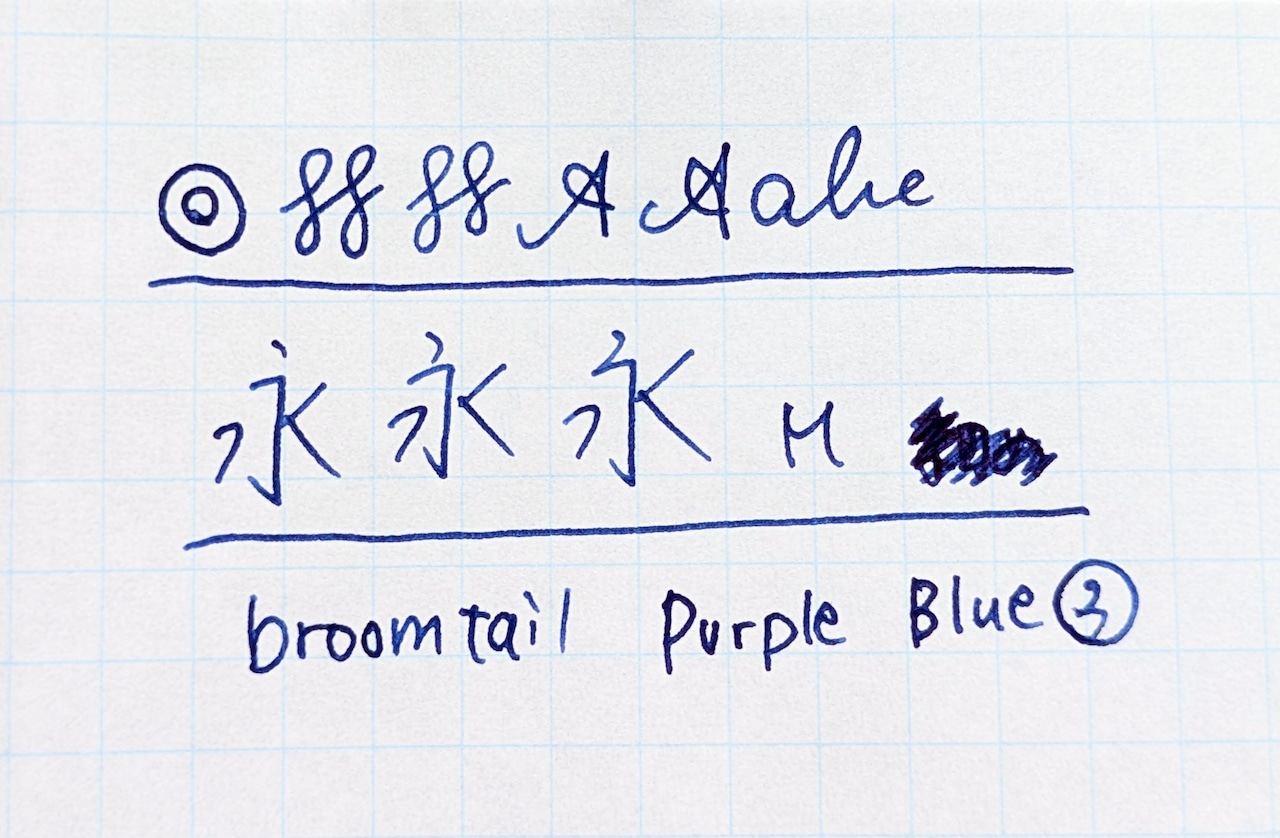 ◎ ff ff A A abe
永 永 永 M
broomtail Purple Blue ③